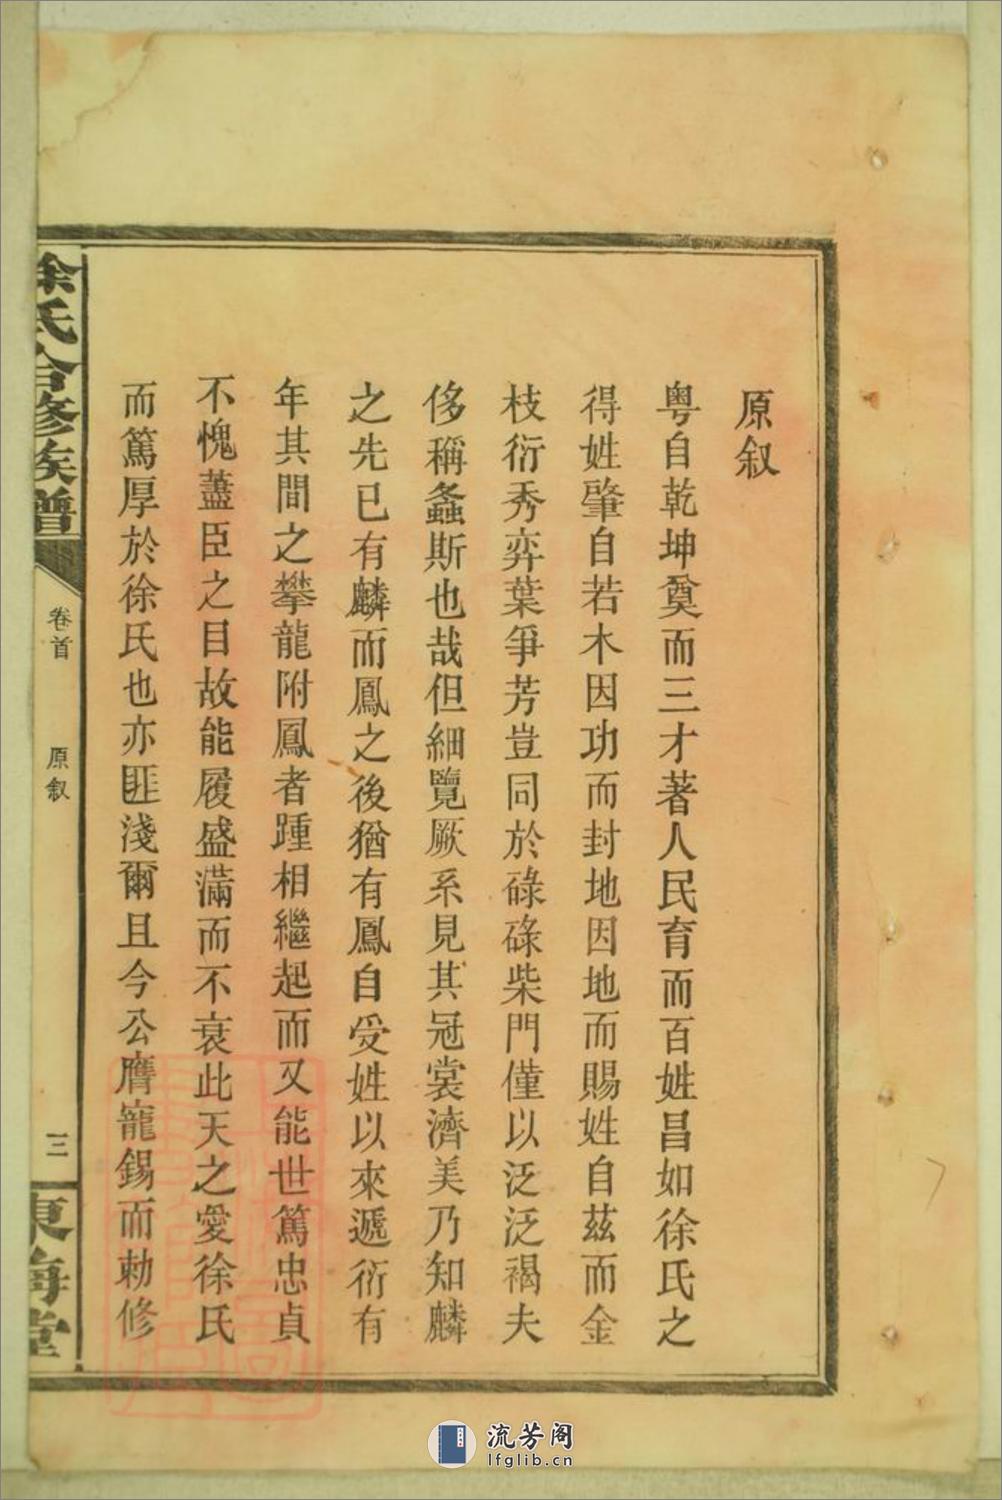 原叙
粤自乾坤奠而三才著人民育而百姓昌如徐氏之
得姓肇自若木因功而封地因地而賜姓自茲而金
枝衍秀弈葉爭芳豈同於碌碌柴門僅以泛泛褐夫
侈稱螽斯也哉但細覽厥系見其冠裳濟美乃知麟
之先已有麟而鳳之後猶有鳳自受姓以來遞衍有
年其間之攀龍附鳳者踵相繼起而又能世篤忠貞
不愧藎臣之目故能履盛滿而不衰此天之愛徐氏
而篤厚於徐氏也亦匪淺爾且今公膺寵錫而勅修
徐氏合修族譜
卷首
原叙
三
東海堂
流芳阁
lfglib.cn